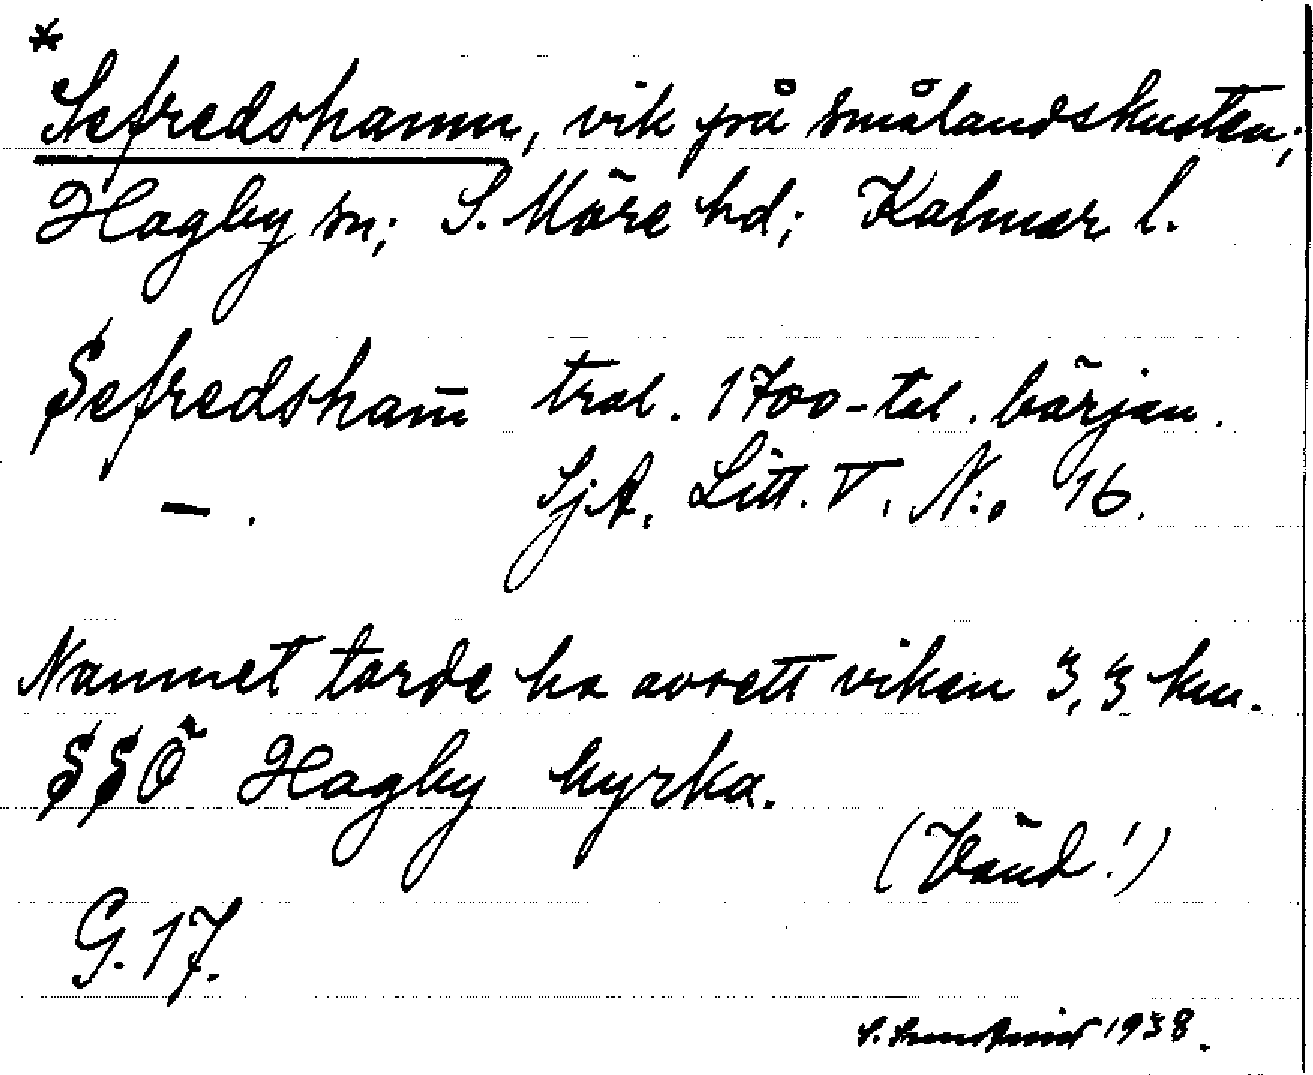 *
Sefredshamn, vik på smålandskusten;
Hagby sn; S. Möre hd; Kalmar l.
Sefredsham̄ trol. 1700-tal. början.
— . SjA. Litt. V. N:o 16.
Namnet torde ha avsett viken 3,3 km.
SSÖ Hagby kyrka.
(Vänd!)
G. 17.
S. 1938.